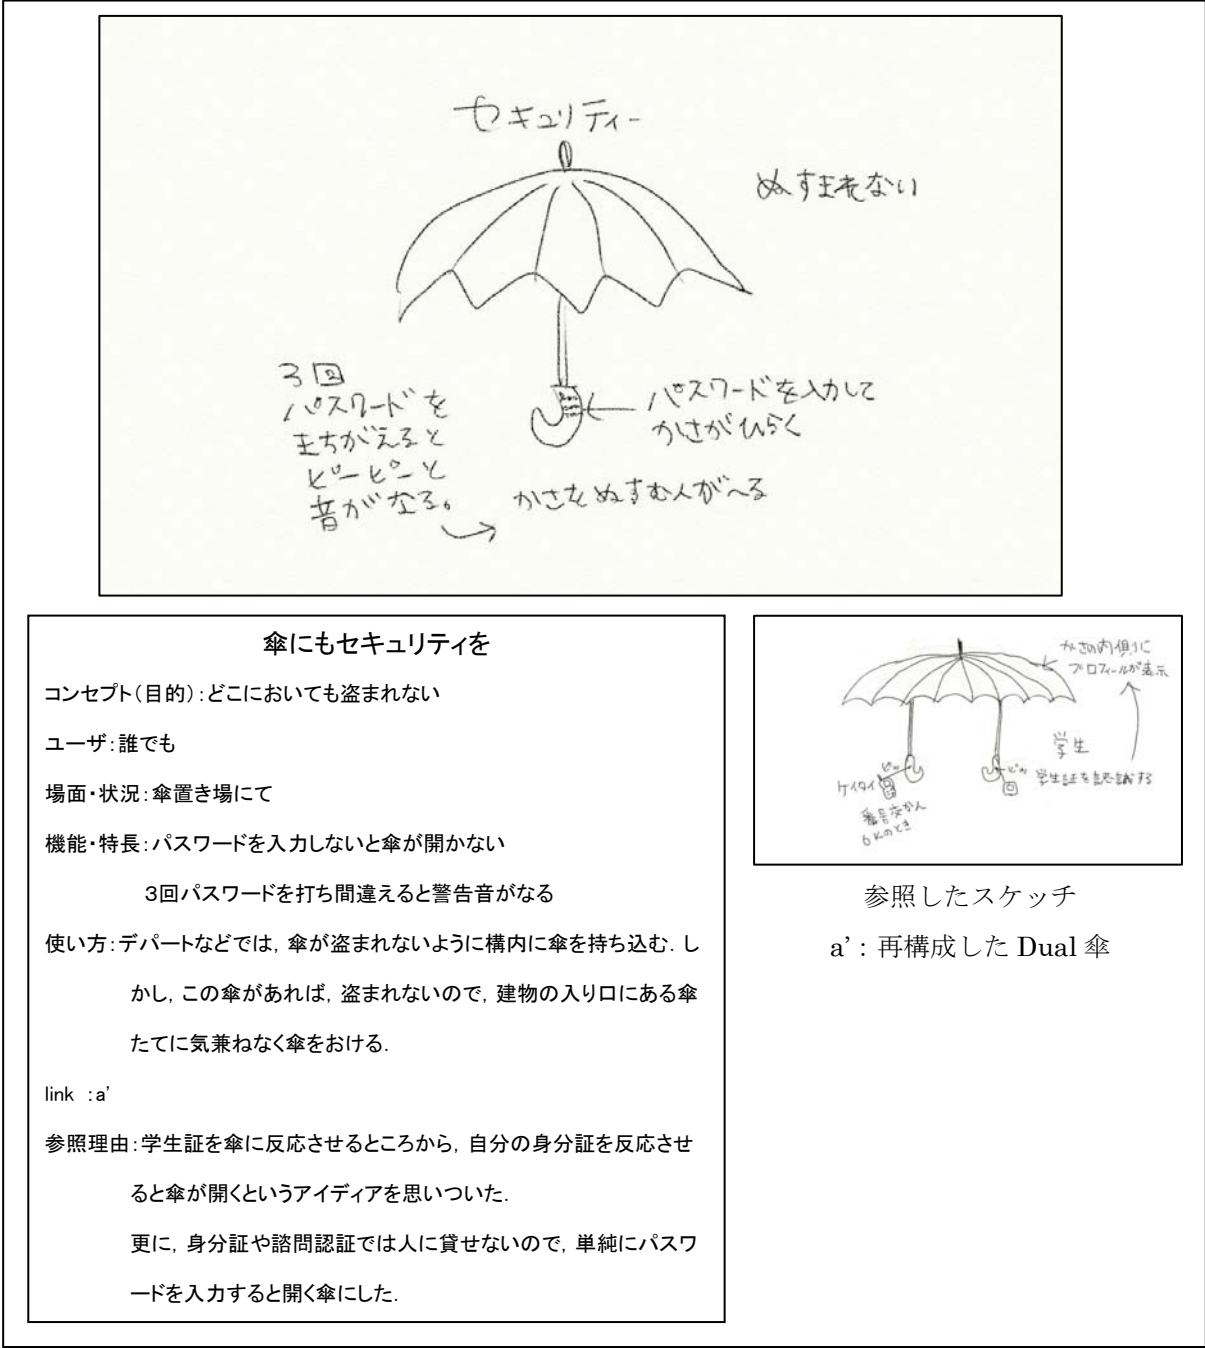 セキュリティー
ぬすまれない
3回
パスワードを
まちがえると
ピーピーと
音がなる。
パスワードを入力して
かさがひらく
かさをぬすむ人がへる
傘にもセキュリティを
コンセプト(目的):どこにおいても盗まれない
ユーザ:誰でも
場面・状況:傘置き場にて
機能・特長:パスワードを入力しないと傘が開かない
3回パスワードを打ち間違えると警告音がなる
使い方:デパートなどでは,傘が盗まれないように構内に傘を持ち込む.し
かし,この傘があれば,盗まれないので,建物の入り口にある傘
たてに気兼ねなく傘をおける.
link :a’
参照理由:学生証を傘に反応させるところから,自分の身分証を反応させ
ると傘が開くというアイディアを思いついた.
更に,身分証や諮問認証では人に貸せないので,単純にパスワ
ードを入力すると開く傘にした.
かさの内側に
プロフィールが表示
学生
学生証を認識する
ピッ
ピッ
ケイタイ
番号交かん
OKのとき
参照したスケッチ
a’:再構成した Dual 傘